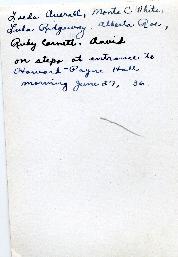 Leeda Averall, Monte C. White,
Lula Ridgeway. Alberta Roe,
Ruby Cornett. David
on steps at entrance to
Howard-Payne Hall,
morning June 27, 36.